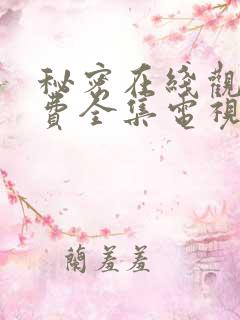 秘密在綫觀
費全集電視
蘭羞羞